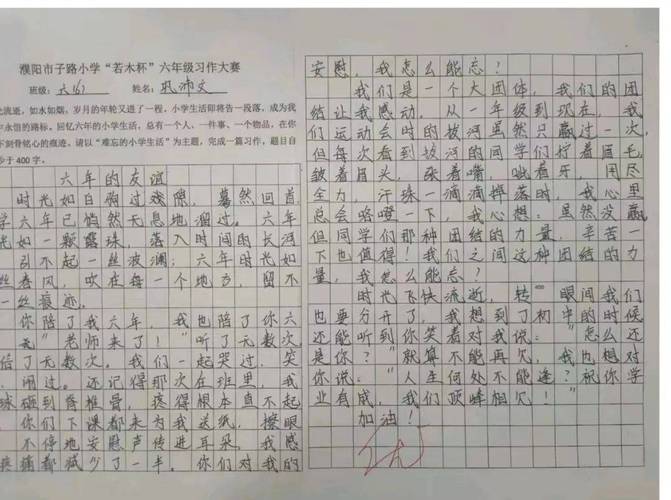 濮阳市子路小学“若木杯”六年级习作大赛
班级：六 姓名：
光流逝，如水如烟，岁月的年轮又进了一程，小学生活即将告一段落，成为我
永恒的路标。回忆六年的小学生活，总有一个人、一件事、一个物品，在你
下刻骨铭心的痕迹。请以“难忘的小学生活”为主题，完成一篇习作，题目自
少于 400 字。
六年的友谊
时光如白驹过戏隙，蓦然回首，
学六年已悄然无息地溜过。六年
光如一颗露珠，落入时间的长河
引不起一丝波澜；六年时光如
丝春风，吹在每一个地方，留不
一丝痕迹。
你陪了我六年，我也陪了你六
无“老师来了！”听了无数次，
信了无数次。我们一起哭过，笑
闹过。还记得那次在班里，我
球砸到脊椎骨，疼得根本直不起
你们下课都来为我送纸，擦眼
不停地安慰声传进耳朵，我感
疼痛都减少了一半。你们对我的
安慰，我怎么能忘！
我们是一个大团体，我们的团
结让我感动，从一年级到现在，我
们运动会时的拔河虽然只赢过一次，
但每次看到拔河的同学们拧着眉毛，
皱着眉头，张着嘴，呲着牙，用尽
全力，汗珠一滴滴掉落时，我心里
总会咯噔一下，我心想：虽然没赢
但同学们那种团结的力量，辛苦一
下也值得！我们之间这种团结的力
量，我怎么能忘！
时光飞快流逝，转眼间我们
也要分开了，我想到了初中的时候
还能听到你笑着对我说：“怎么还
是你？”就算不能再欠，我也想对
你说：“人生何处不能逢？祝你学
业有成，我们顶峰相欠！”
加油！